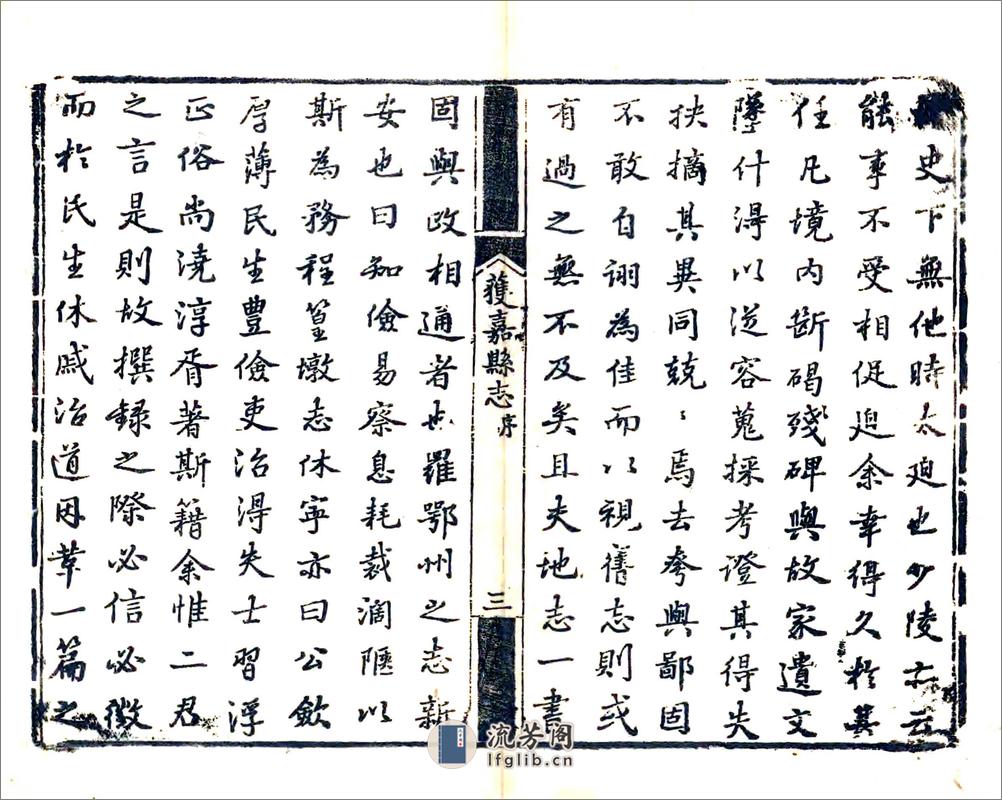 史下無他時太迫也少陵亦云
能事不受相促迫余幸得久於其
任凡境内斷碣殘碑與故家遺文
墜什得以從容蒐採考證其得失
抉摘其異同兢〻焉去夸與鄙固
不敢自詡為佳而以視舊志則或
有過之無不及矣且夫地志一書
獲嘉縣志 序 三
固與政相通者也羅鄂州之志新
安也曰知儉易察息耗裁濶隘以
斯為務程篁墩志休寧亦曰公歛
厚薄民生豊儉吏治得失士習浮
正俗尚澆淳胥著斯籍余惟二君
之言是則故撰録之際必信必徴
而於民生休戚治道因革一篇之
流芳阁
lfglib.cn